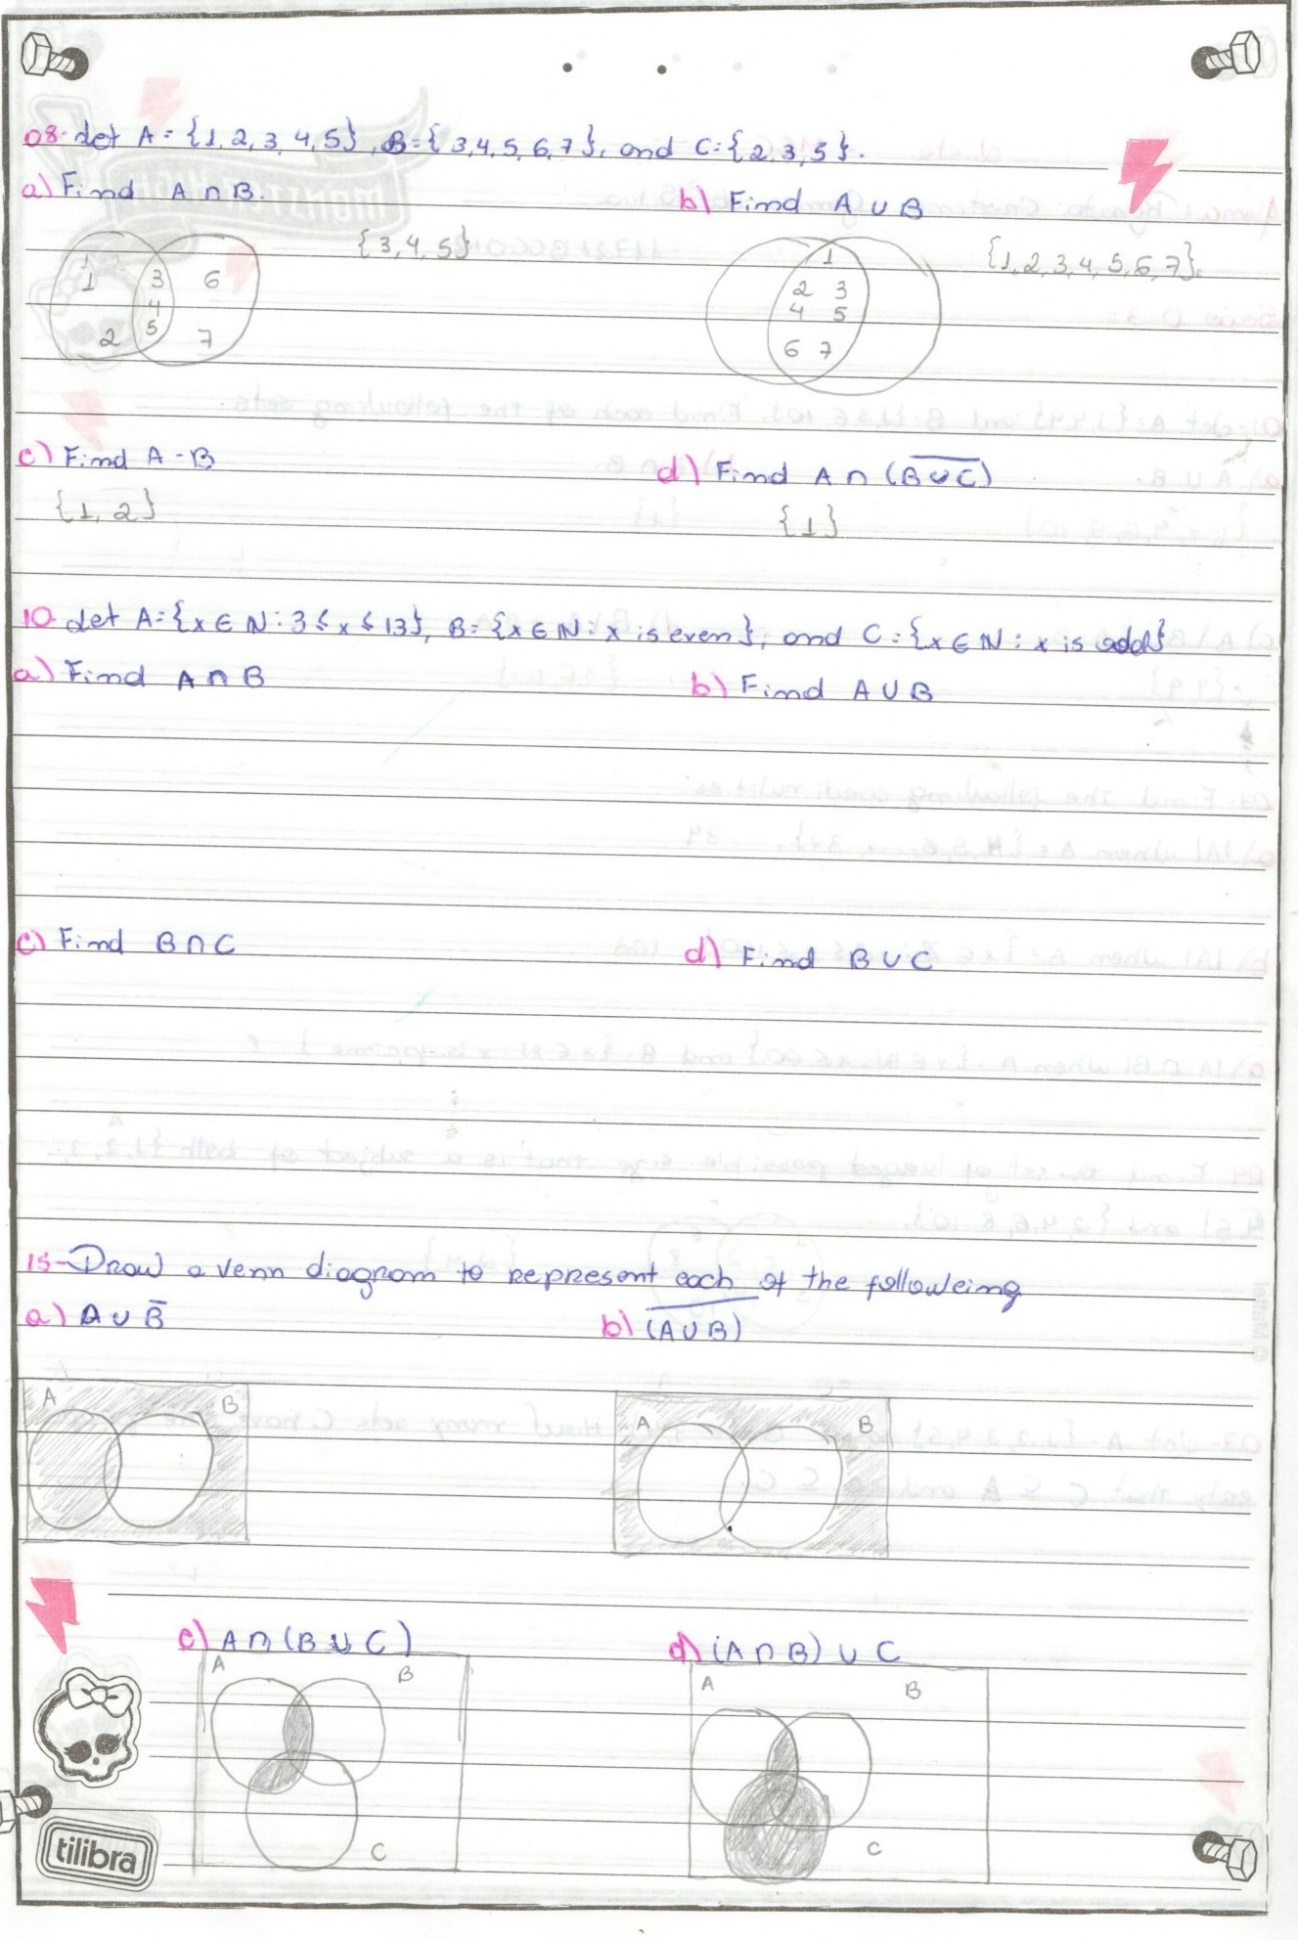 08. Let A = {1, 2, 3, 4, 5}, B = {3,4,5,6,7}, and C = {2,3,5}.
a) Find A ∩ B.
b) Find A ∪ B
{3,4,5}
{1,2,3,4,5,6,7}.
1 3 6
4
2 5 7
1
2 3
4 5
6 7
c) Find A - B
d) Find A ∩ (B̅ ̅∪̅ ̅C̅)
{1, 2}
{1}
10. Let A = {x ∈ N : 3 ≤ x ≤ 13}, B = {x ∈ N : x is even}, and C = {x ∈ N : x is odd}
a) Find A ∩ B
b) Find A ∪ B
c) Find B ∩ C
d) Find B ∪ C
15- Draw a Venn diagram to represent each of the followeing
a) A ∪ B̅
b) (̅A̅ ̅∪̅ ̅B̅)̅
A B
A B
c) A ∩ (B ∪ C)
d) (A ∩ B) ∪ C
A B
C
A B
C
tilibra